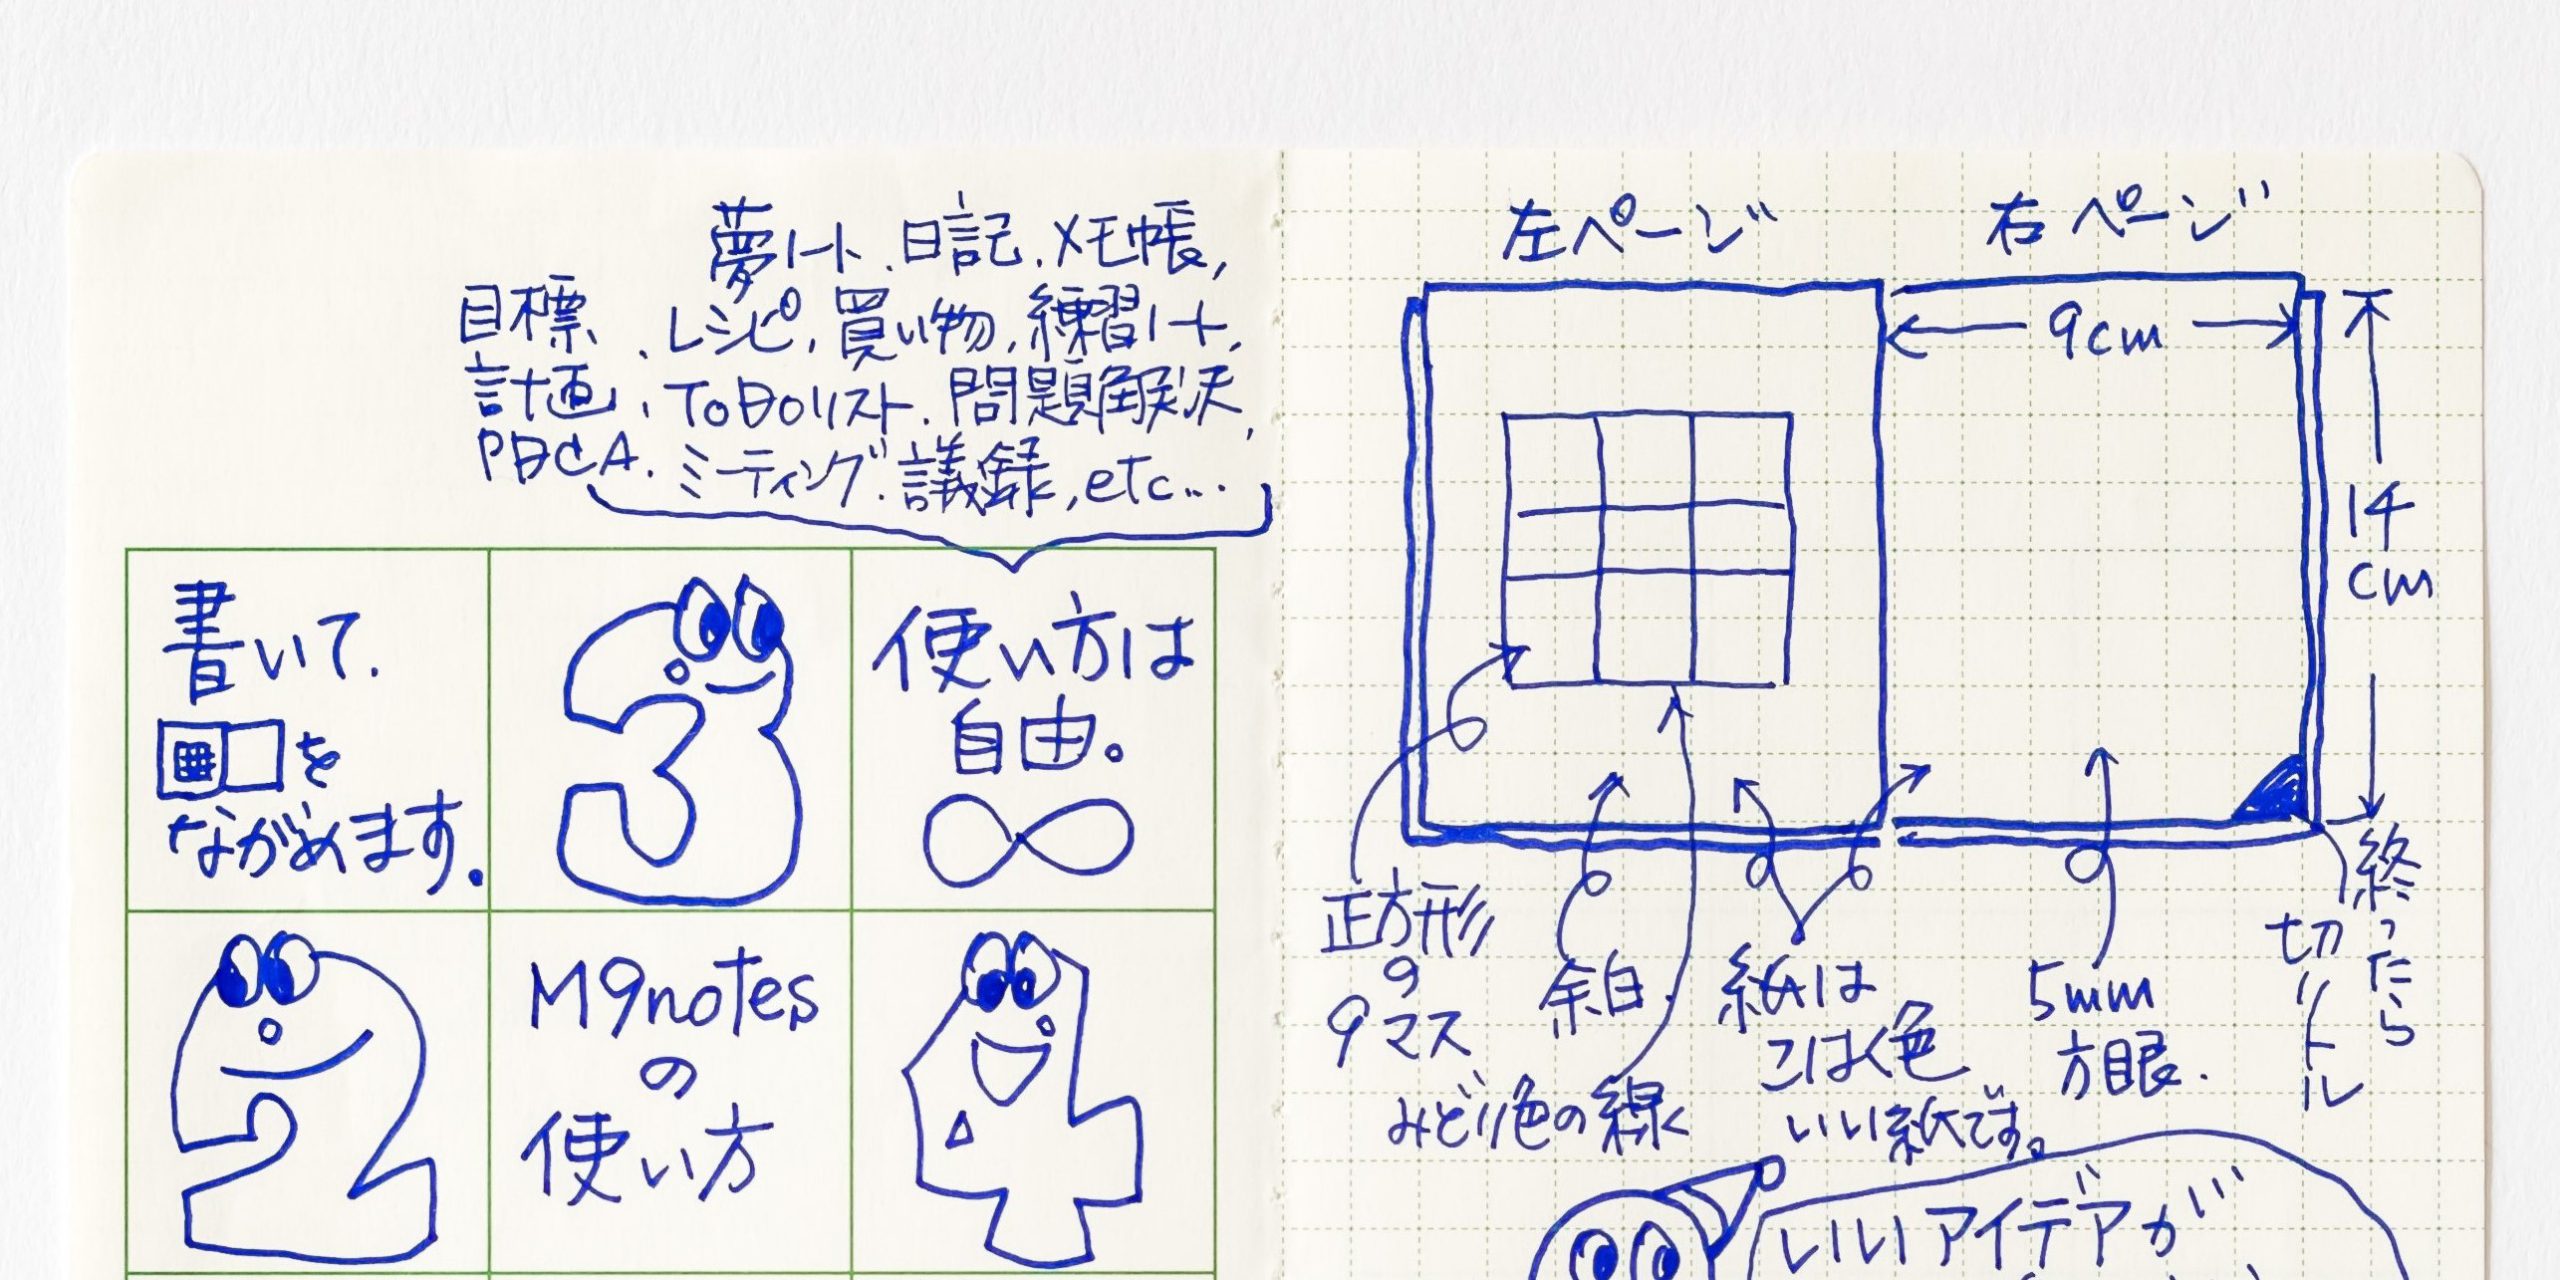 夢ノート、日記、メモ帳、
目標、レシピ、買い物、練習ノート、
計画、ToDoリスト、問題解決、
PDCA、ミーティング、議録、etc...
書いて、
を
ながめます。
3
使い方は
自由。
∞
2
M9notes
の
使い方
4
左ページ
右ページ
9cm
14
cm
正方形
の
9マス
みどり色の線
余白、
紙は
こはく色
いい紙です。
5mm
方眼、
終ったら
切りトル
いいアイデアが